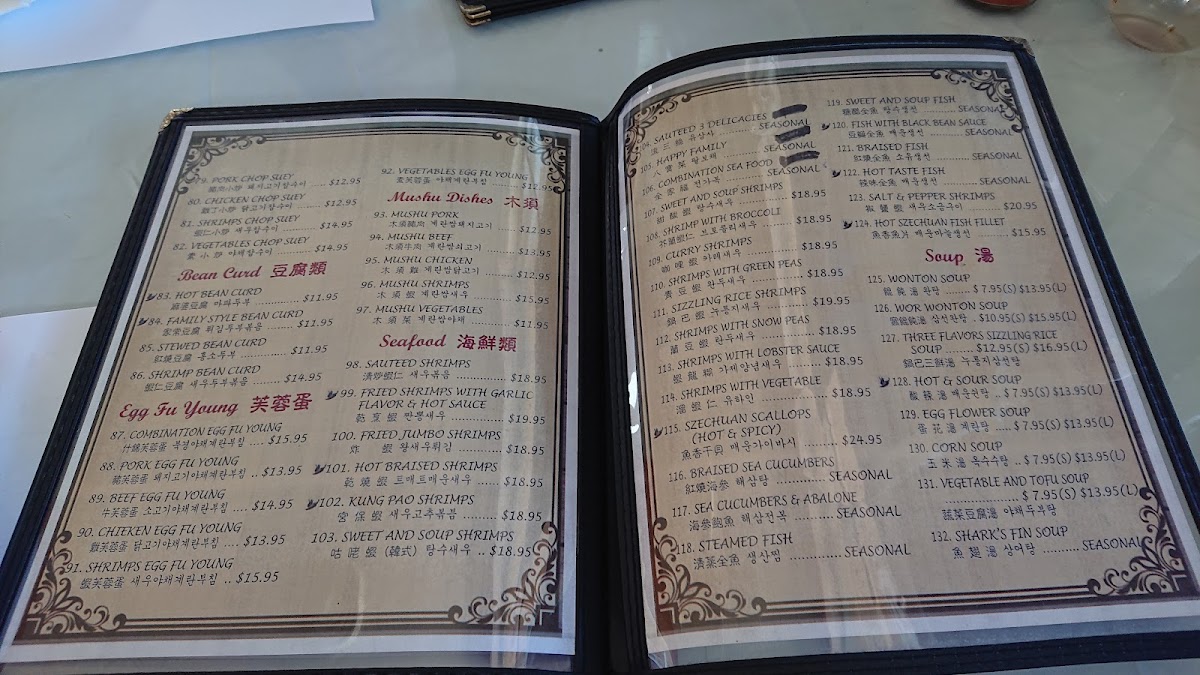 79. PORK CHOP SUEY
豬肉小炒 돼지고기잡수이 ..... $12.95
80. CHICKEN CHOP SUEY
雞丁小炒 닭고기잡수이 ........ $12.95
81. SHRIMPS CHOP SUEY
蝦仁小炒 새우잡수이 ......... $14.95
82. VEGETABLES CHOP SUEY
素小炒 야채잡수이 ......... $14.95
Bean Curd 豆腐類
83. HOT BEAN CURD
麻蛋豆腐 마파두부 ......... $11.95
84. FAMILY STYLE BEAN CURD
家常豆腐 튀김두부볶음 ....... $11.95
85. STEWED BEAN CURD
紅燒豆腐 홍소두부 ............ $11.95
86. SHRIMP BEAN CURD
蝦仁豆腐 새우두부볶음 ....... $14.95
Egg Fu Young 芙蓉蛋
87. COMBINATION EGG FU YOUNG
什錦芙蓉蛋 복경야채계란부침 .... $15.95
88. PORK EGG FU YOUNG
豬芙蓉蛋 돼지고기야채계란부침 ... $13.95
89. BEEF EGG FU YOUNG
牛芙蓉蛋 소고기야채계란부침 .... $14.95
90. CHIEKEN EGG FU YOUNG
雞芙蓉蛋 닭고기야채계란부침 .... $13.95
91. SHRIMPS EGG FU YOUNG
蝦芙蓉蛋 새우야채계란부침 .. $15.95
92. VEGETABLES EGG FU YOUNG
素芙蓉蛋 야채계란부침 ......... $12.95
Mushu Dishes 木須
93. MUSHU PORK
木須豬肉 계란쌈돼지고기 ....... $12.95
94. MUSHU BEEF
木須牛肉 계란쌈쇠고기 ........ $13.95
95. MUSHU CHICKEN
木須雞 계란쌈닭고기 ......... $12.95
96. MUSHU SHRIMPS
木須蝦 계란쌈새우 ........... $15.95
97. MUSHU VEGETABLES
木須菜 계란쌈야채 ........... $12.95
Seafood 海鮮類
98. SAUTEED SHRIMPS
清炒蝦仁 새우볶음 ............. $18.95
99. FRIED SHRIMPS WITH GARLIC
FLAVOR & HOT SAUCE
乾烹蝦 깐뿡새우 ............. $19.95
100. FRIED JUMBO SHRIMPS
炸蝦 왕새우튀김 ............. $18.95
101. HOT BRAISED SHRIMPS
乾燒蝦 트매트매운새우 ....... $18.95
102. KUNG PAO SHRIMPS
宮保蝦 새우고추볶음 ......... $18.95
103. SWEET AND SOUP SHRIMPS
咕咾蝦 (韓式) 탕수새우 .. $18.95
104. SAUTEED 3 DELICACIES
溜三樣 유삼사 ........... SEASONAL
105. HAPPY FAMILY
八寶菜 팔보채 ............ SEASONAL
106. COMBINATION SEA FOOD
全家福 전가복 ............ SEASONAL
107. SWEET AND SOUP SHRIMPS
甜酸蝦 탕수새우 .......... $18.95
108. SHRIMP WITH BROCCOLI
芥蘭蝦仁 브로콜리새우 ....... $18.95
109. CURRY SHRIMPS
咖哩蝦 카레새우 .......... $18.95
110. SHRIMPS WITH GREEN PEAS
青豆蝦 완두새우 .......... $18.95
111. SIZZLING RICE SHRIMPS
鍋巴蝦 누룽지새우 .......... $19.95
112. SHRIMPS WITH SNOW PEAS
蘭豆蝦 란두새우 ............ $18.95
113. SHRIMPS WITH LOBSTER SAUCE
蝦龍糊 가재양념새우 ......... $18.95
114. SHRIMPS WITH VEGETABLE
溜蝦仁 유하인 ............. $18.95
115. SZECHUAN SCALLOPS
(HOT & SPICY)
魚香干貝 매운가이바시 ....... $24.95
116. BRAISED SEA CUCUMBERS
紅燒海參 해삼탕 ......... SEASONAL
117. SEA CUCUMBERS & ABALONE
海參鮑魚 해삼전복 .......... SEASONAL
118. STEAMED FISH
清蒸全魚 생선찜 ............ SEASONAL
119. SWEET AND SOUP FISH
糖醋全魚 탕수생선 .......... SEASONAL
120. FISH WITH BLACK BEAN SAUCE
豆豉全魚 매운생선 .......... SEASONAL
121. BRAISED FISH
紅燒全魚 소유생선 .......... SEASONAL
122. HOT TASTE FISH
辣味全魚 매운생선 .......... SEASONAL
123. SALT & PEPPER SHRIMPS
椒鹽蝦 새우소금구이 ......... $20.95
124. HOT SZECHUAN FISH FILLET
魚香魚片 매운마늘생선 ....... $15.95
Soup 湯
125. WONTON SOUP
餛飩湯 완탕 ....... $ 7.95(S) $13.95(L)
126. WOR WONTON SOUP
窩餛飩湯 삼선완탕 .. $10.95(S) $15.95(L)
127. THREE FLAVORS SIZZLING RICE
SOUP ........ $12.95(S) $16.95(L)
鍋巴三鮮湯 누룽지삼선탕
128. HOT & SOUR SOUP
酸辣湯 매운전탕 .. $ 7.95(S) $13.95(L)
129. EGG FLOWER SOUP
蛋花湯 계란탕 ..... $ 7.95(S) $13.95(L)
130. CORN SOUP
玉米湯 옥수수탕 .. $ 7.95(S) $13.95(L)
131. VEGETABLE AND TOFU SOUP
..................... $ 7.95(S) $13.95(L)
蔬菜豆腐湯 야채두부탕
132. SHARK'S FIN SOUP
魚翅湯 상어탕 .......... SEASONAL